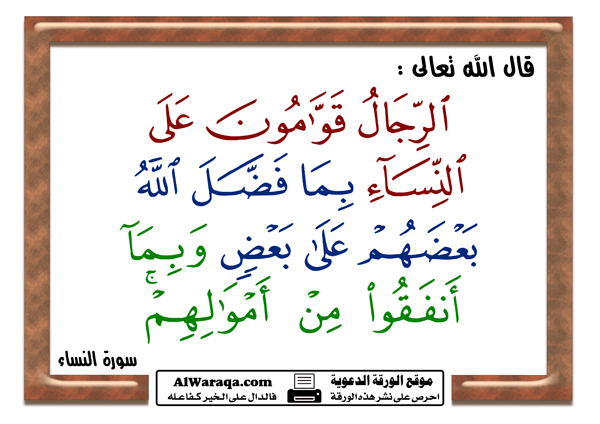 قال الله تعالى :
ٱلرِّجَالُ قَوَّٰمُونَ عَلَى
ٱلنِّسَآءِ بِمَا فَضَّلَ ٱللَّهُ
بَعۡضَهُمۡ عَلَىٰ بَعۡضٖ وَبِمَآ
أَنفَقُواْ مِنۡ أَمۡوَٰلِهِمۡۚ
سورة النساء
موقع الورقة الدعوية
احرص على نشر هذه الورقة
AlWaraqa.com
فالدال على الخير كفاعله